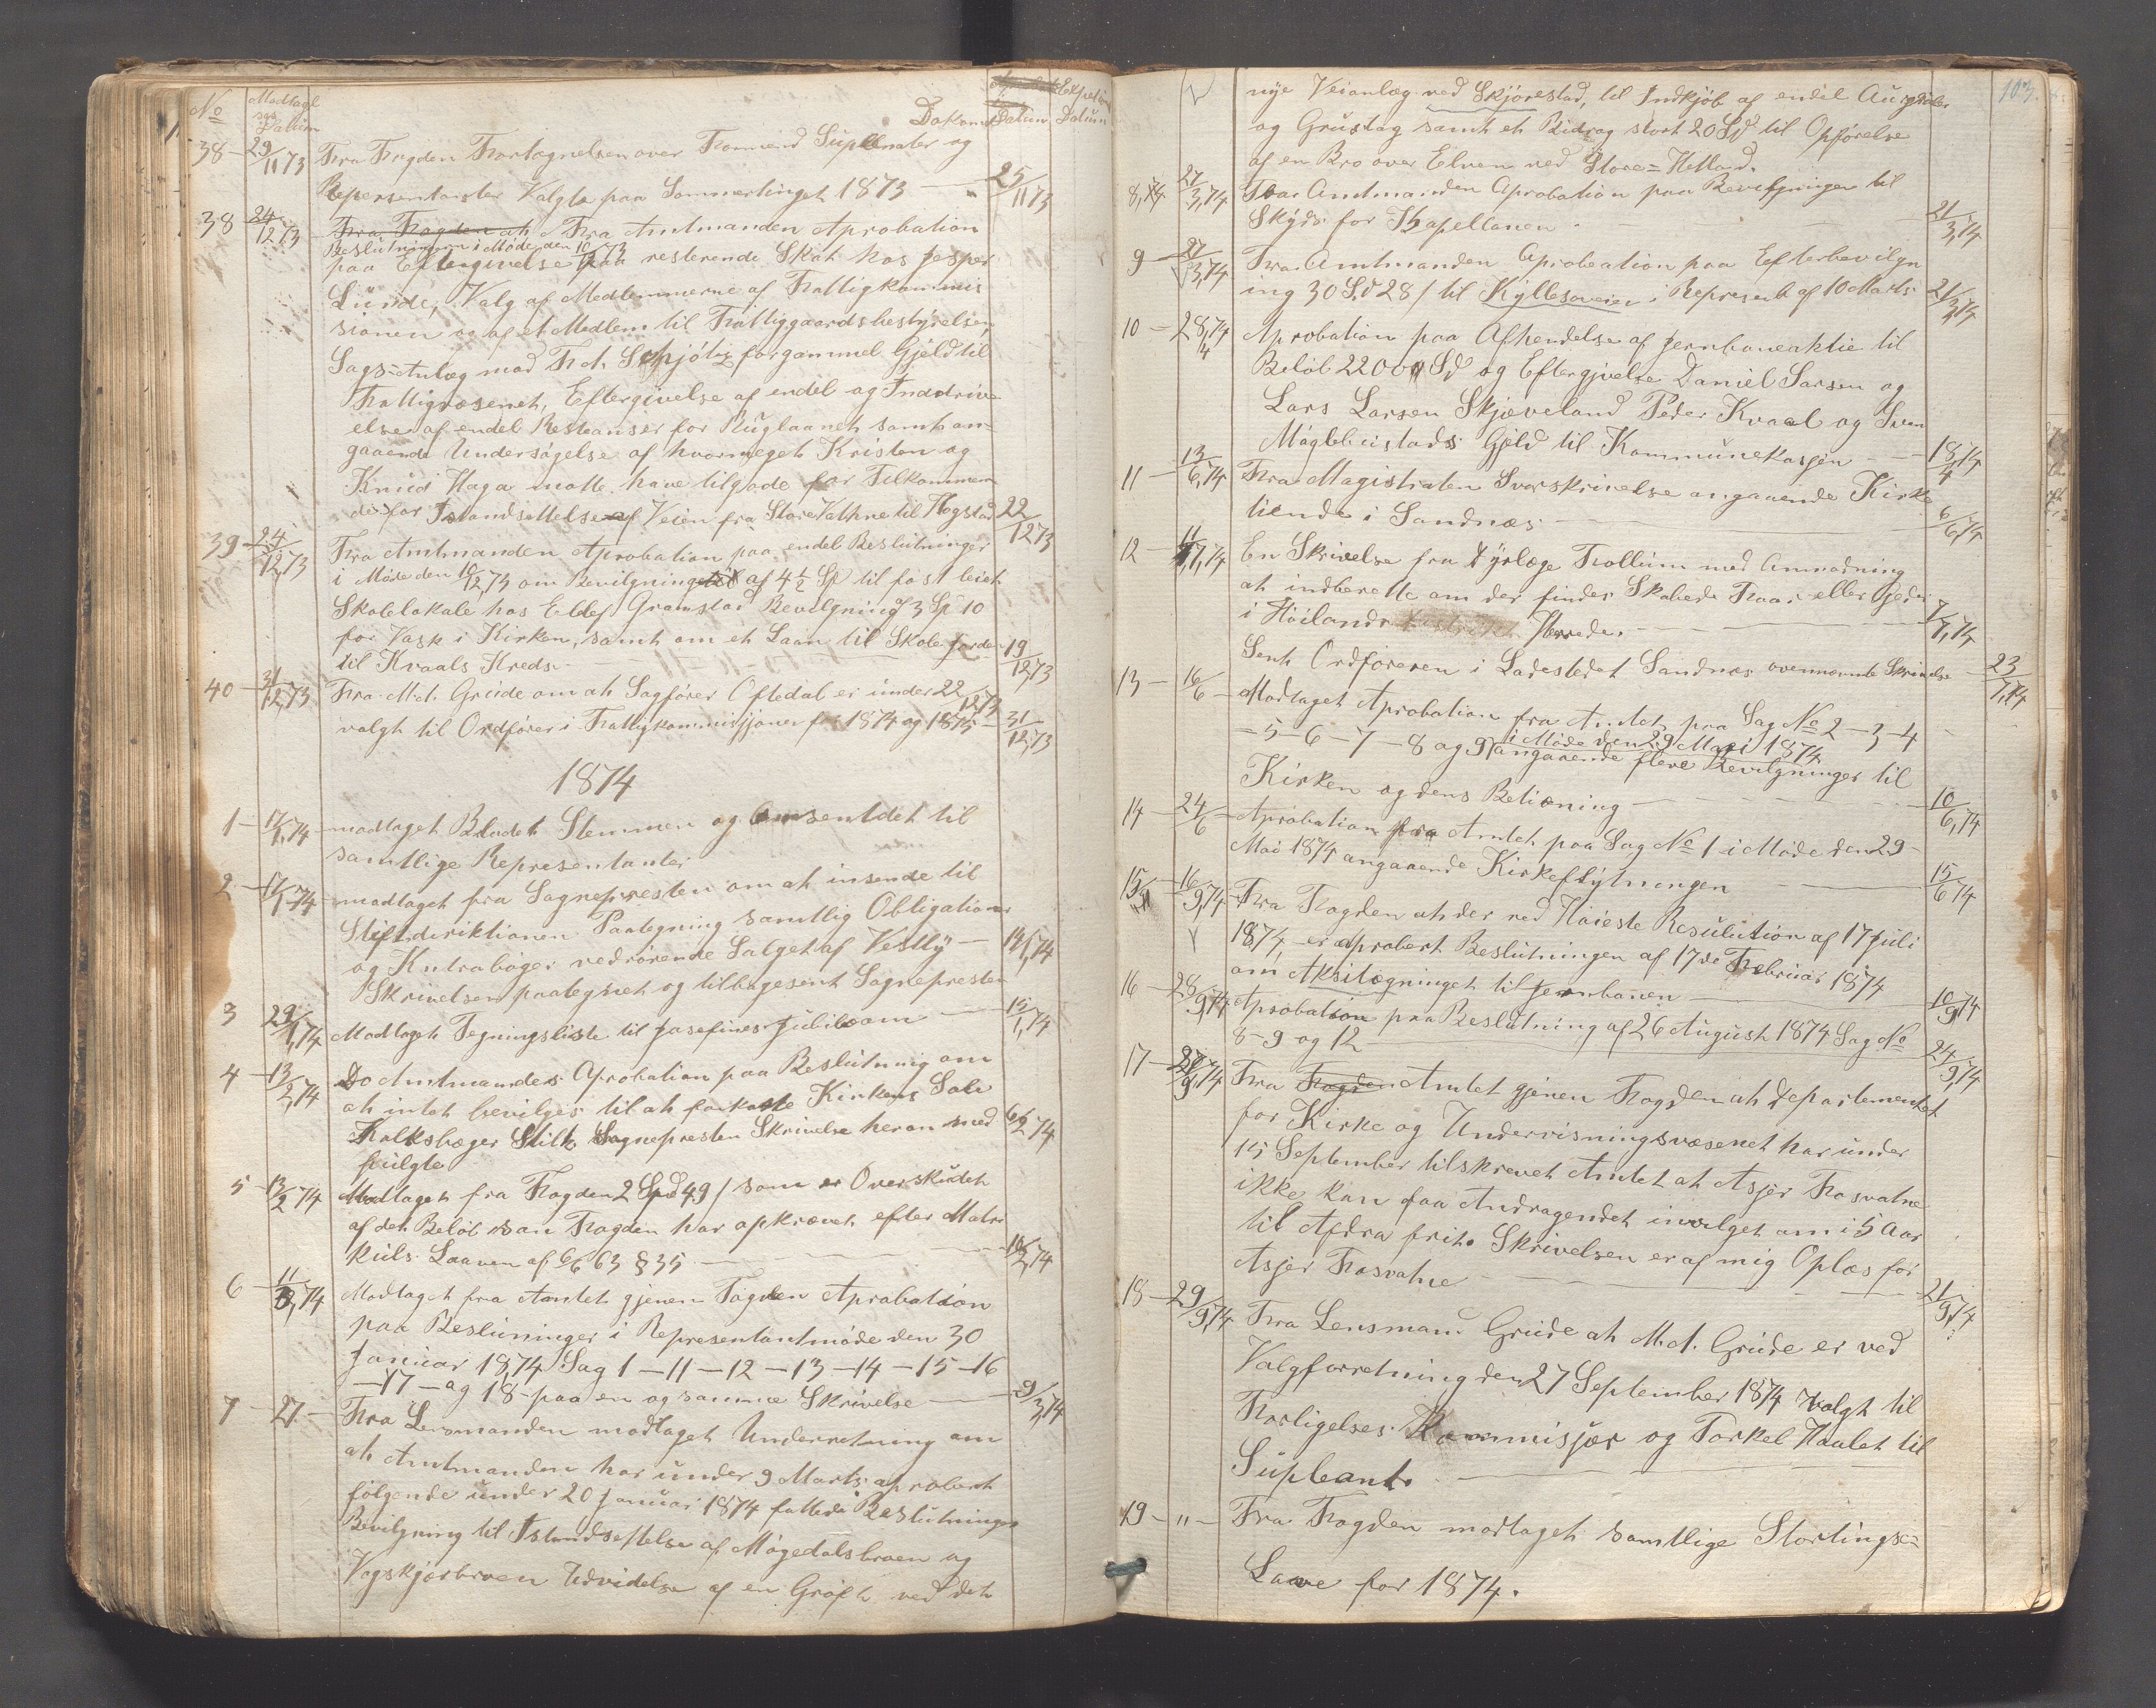 No Modtagelses Datum Dokum Datum Expetions Datum
38 - 29/11 73 Fra Fogden Fortegnelsen over Formend Suplenter og
Repersentanter Valgte paa Sommertinget 1873 — " 25/11 73
38 24/12 73 Fra Fogden at Fra Amtmanden Aprobation
Beslutningern i Møde den 10/12 73
paa Eftergivelse paa resterende Skat hos Jesper
Lunde, Valg af Medlemmerne af Fattigkommis
sionen og af et Medlem til Fattiggaardsbestyrelsen
Sags-Anlæg mod Fr. A. Schjötz for gammel Gjeld til
Fattigvæsenet, Eftergivelse af endel og Inddriv
else af endel Restanser for Ruglaanet samt an-
gaaende Undersøgelse af hvormeget Kristen og
Knud Haga motte have tilgode for Tilkommen
de for Istandsettelse af Veien fra Store Vathne til Hogstad 22/12 73
39 - 24/12 73 Fra Amtmanden Aprobation paa endel Beslutninger
i Møde den 10/12 73 om Bevilgning af 4½ Sp til fast leiet
Skolelokale hos Ellef Gramstad Bevilgning af 3 Sp 10
for Vask i Kirken, samt om et Laan til Skole jorde
til Kvaals Kreds — 19/12 73
40 - 31/12 73 Fra M. A. Grude om at Sagfører Oftedal er under 22/12 73
valgt til Ordfører i Fattigkommisjonen for 1874 og 1875 - 31/12 73
1874
1 - 17/1 74 - modtaget Bladet Stemmen og omsendtet til
samtlige Representanter
2 - 17/1 74 - modtaget fra Sognepresten om at insende til
Stiftsdiriktionen Paategning samtlig Obligationer
og Kntrabøger vedrørende Salget af Vestly —
Skrivelsen paategnet og tilbagesent Sognepresten
3 29/1 74 Modtaget Tegningsliste til Josefines Jubileom — 15/1 74
4 - 13/2 74 Do Amtmandens Aprobation paa Beslutning om
at intet bevilges til at forkaste Kirkens Sølv
Kalksbæger Stilt Sognepresten Skrivelse herom med
fulgte
5 - 13/2 74 Modtaget fra Fogden 2 Spd 49 / som er Overskudet
af det Beløb som Fogden har opkrævet efter Matri
kuls Laaven af 6/6 63 § 35 —
6 - 11/3 74 Modtaget fra Amtet gjenem Fogden Aprobation
paa Beslutninger i Representantmøde den 30
Januar 1874 Sag 1 — 11 — 12 — 13 — 14 — 15 — 16
— 17 — og 18 - paa en og samme Skrivelse — 9/3 74
7 - 27 - Fra Lensmanden modtaget Underretning om
at Amtmanden har under 9 Marts aprobert
følgende under 20 Januar 1874 fattede Beslutninger
Bevilgning til Istandsettelse af Møgedalsbroen og
Vagskjærbroen Udvidelse af en Grøft ved det
103.
nye Veianlæg ved Skjørestad, til Indkjøb af endel
og Grustag samt et Bidrag stort 20 Spd til Opførelse
af en Bro over Elven ved Store-Hetland.
8, 74 27/3 74 Fra Amtmanden Aprobation paa Bevilgningen til
Skyds for Kapellanen — 21/3 74
9 - 27/3 74 Fra Amtmanden Aprobation paa Efterbevilgn
ing 30 S.d 28 / til Kyllesoveien i Represent. af 10 Marts 21/3 74
10 - 28/4 74 Aprobation paa Afhendelse af Jernbaneaktie til
Beløb 22000 Sd og Eftergjvelse Daniel Larsen og
Lars Larsen Skjæveland Peder Kvaal og Sven
Møglebustads Gjeld til Kommunekassen — 18/4 74
11 - 13/6 74 Fra Magistraten Svarskrivelse angaaende Kirke
tiende i Sandnæs — 6/6 74
12 - 11/7 74 En Skrivelse fra Dyrlæge Follum med Anmodning
at indberette om der findes Skabede Faar eller Gjeder
i Høilands Herrede. — 7/7 74
Sent Ordføreren i Ladestedet Sandnæs ovennevnte Skrivelse — 23/7 74
13 - 16/6 - Modtaget Aprobation fra Amtet paa Sag No 2 — 3 — 4
— 5 — 6 — 7 — 8 og 9 i Møde den 29 Mai 1874
angaaende flere Bevilgninger til
Kirken og dens Betjening — 10/6 74
14 - 24/6 - Aprobation fra Amtet paa Sag No 1 i Møde den 29
Mai 1874 angaaende Kirkeflytningen — 15/6 74
15 - 16/9 74 Fra Fogden at der ved Høieste Resulution af 17 Juli
1874 er aprobert Beslutningen af 17de Februar 1874
om Aksitegninget til Jernbanen — 10/9 74
16 - 28/9 74 Aprobation paa Beslutning af 26 August 1874 Sag No
8 - 9 og 12 — 24/9 74
17 - 28/9 74 Fra Fogden Amtet gjenem Fogden at Departementet
for Kirke og Undervisningsvæsenet har under
15 September tilskrevet Amtet at Asjer Fosvatne
ikke kan faa Andragendet invilget om i 5 Aar
til Afdra frit. Skrivelsen er af mig Oplæs for
Asjer Fosvatne — 21/9 74
18 - 29/9 74 Fra Lensmand Grude at M. A. Grude er ved
Valgforretning den 27 September 1874 valgt til
Forligelses Kommisjær og Torkel Haalet til
Supleant. —
19 - " - Fra Fogden modtaget samtlige Stortings-
Lave for 1874.